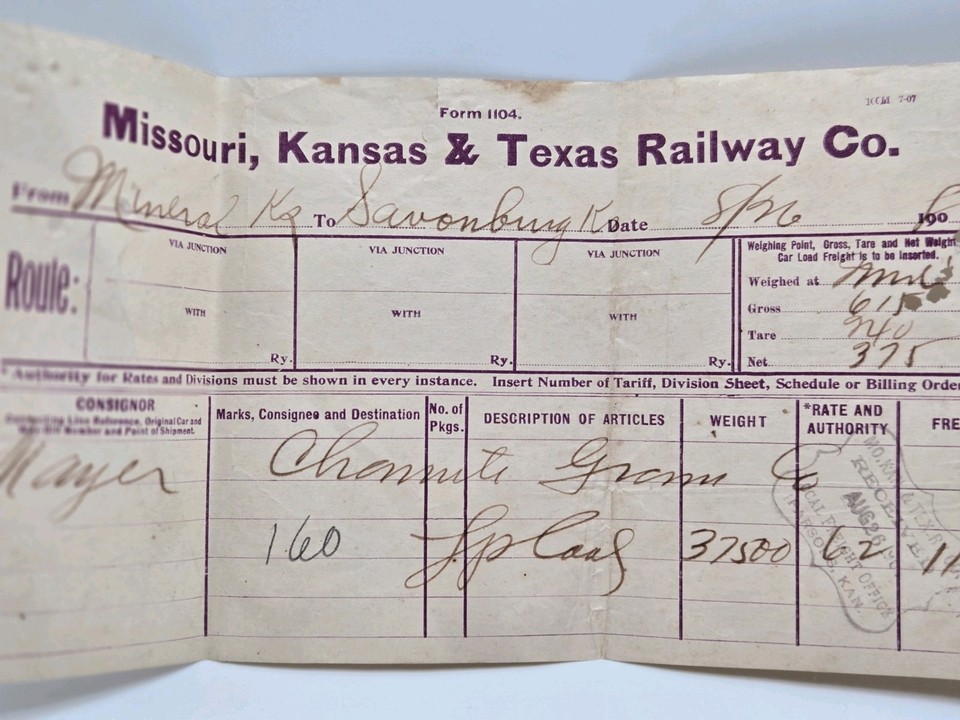 Form 1104.
7-07
Missouri, Kansas & Texas Railway Co.
From Mineral Ks To Savonburg K Date 8/26 190
Route:
VIA JUNCTION VIA JUNCTION VIA JUNCTION
WITH WITH WITH
Ry. Ry. Ry.
Weighing Point, Gross, Tare and Net Weight
Car Load Freight is to be Inserted.
Weighed at
Gross 615
Tare 240
Net 375
*Authority for Rates and Divisions must be shown in every instance. Insert Number of Tariff, Division Sheet, Schedule or Billing Orde
CONSIGNOR
Connecting Line Reference, Original Car and
Way-Bill Number and Point of Shipment.
Marks, Consignee and Destination
No. of Pkgs.
DESCRIPTION OF ARTICLES
WEIGHT
*RATE AND AUTHORITY
FRE
Mayer Chanute Grain Co
160 Coal 37500 62 11
MO. KAN. & TEX. R
RECEIVED
AUG 26
LOCAL FREIGHT OFFICE
PARSONS, KAN.